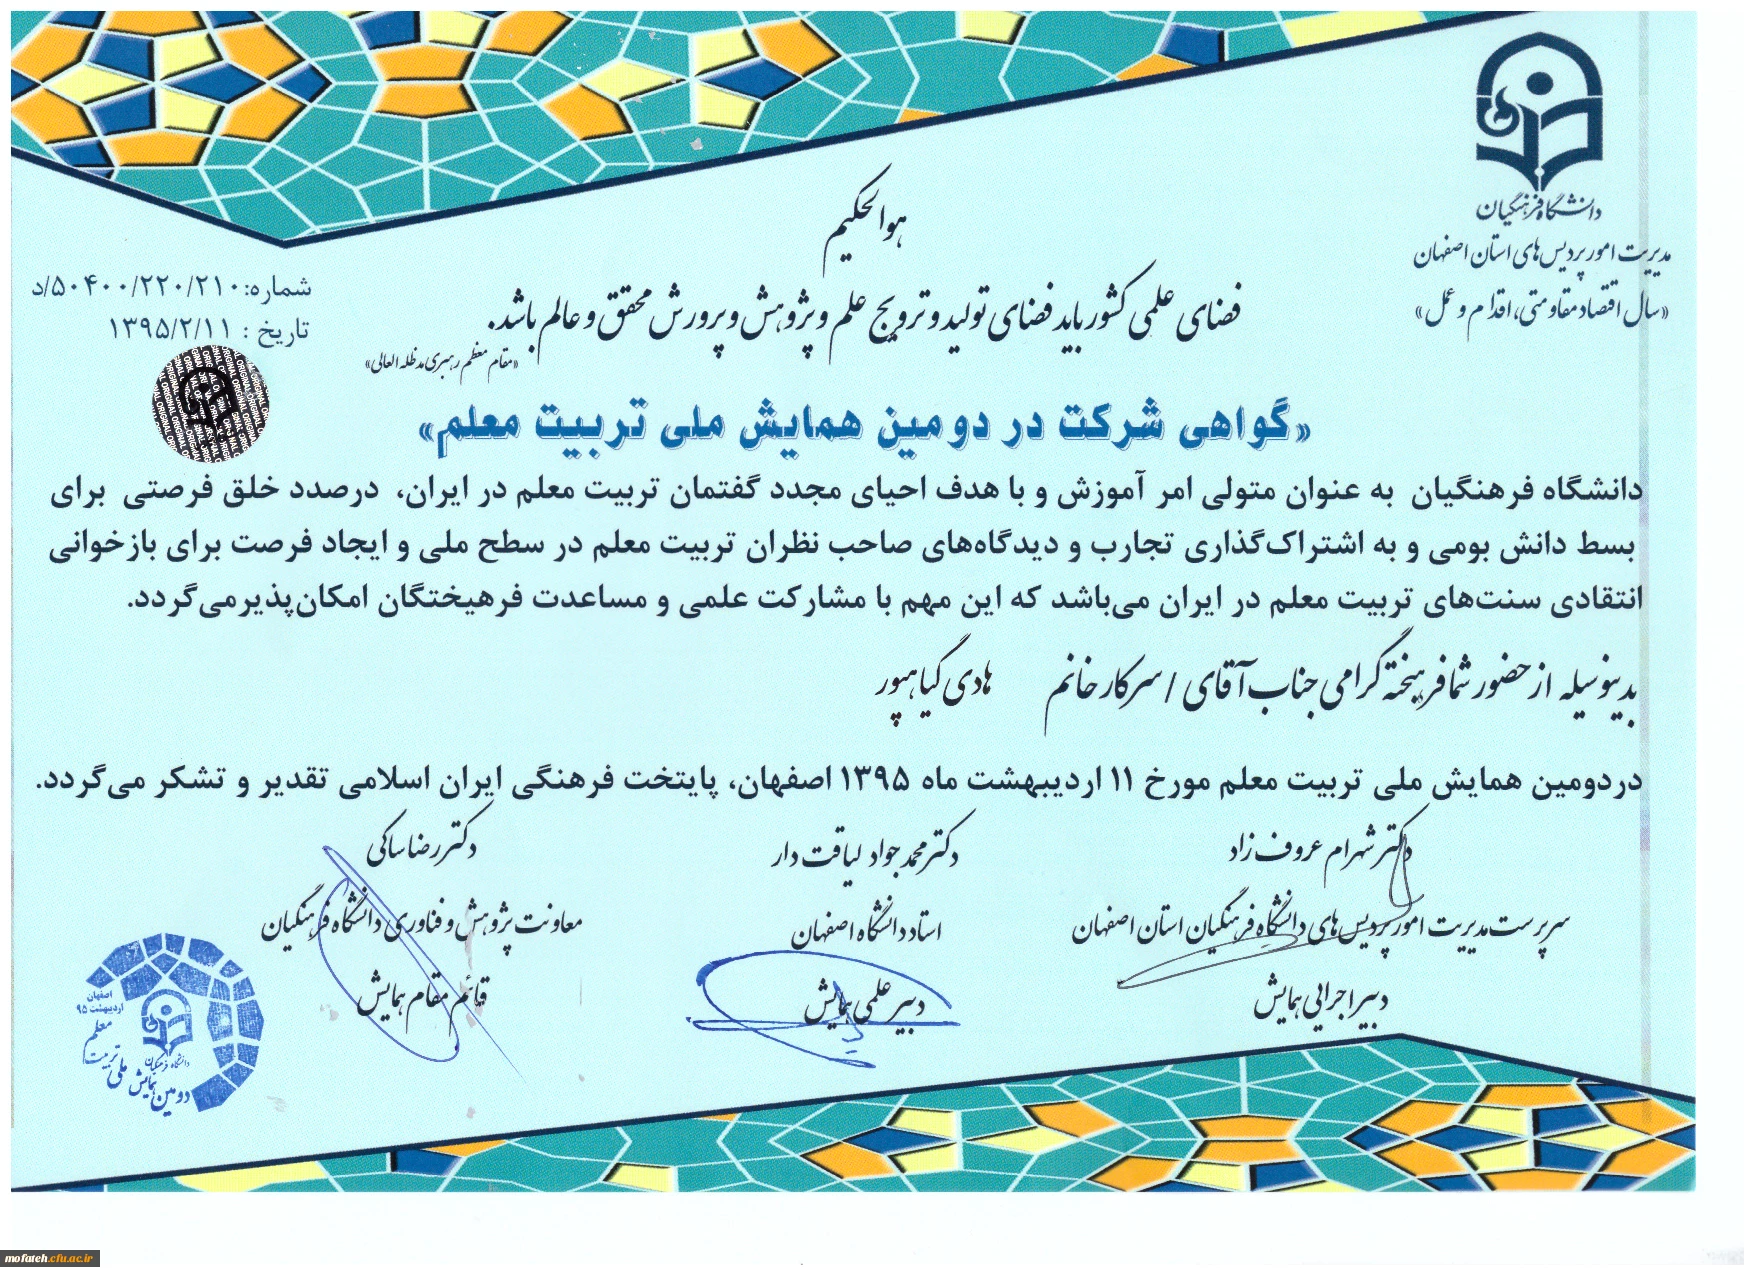 دانشگاه فرهنگیان
مدیریت امور پردیس های استان اصفهان
«سال اقتصاد مقاومتی، اقدام و عمل»
هوالحکیم
شماره:۵۰۴۰۰/۲۲۰/۲۱۰/د
تاریخ : ۱۳۹۵/۲/۱۱
فضای علمی کشور باید فضای تولید و ترویج علم و پژوهش و پرورش محقق و عالم باشد.
«مقام معظم رهبری مدظله العالی»
«گواهی شرکت در دومین همایش ملی تربیت معلم»
دانشگاه فرهنگیان به عنوان متولی امر آموزش و با هدف احیای مجدد گفتمان تربیت معلم در ایران، درصدد خلق فرصتی برای
بسط دانش بومی و به اشتراک‌گذاری تجارب و دیدگاه‌های صاحب نظران تربیت معلم در سطح ملی و ایجاد فرصت برای بازخوانی
انتقادی سنت‌های تربیت معلم در ایران می‌باشد که این مهم با مشارکت علمی و مساعدت فرهیختگان امکان‌پذیرمی‌گردد.
بدینوسیله از حضور شما فرهیخته گرامی جناب آقای / سرکار خانم هادی گیاهپور
دردومین همایش ملی تربیت معلم مورخ ۱۱ اردیبهشت ماه ۱۳۹۵ اصفهان، پایتخت فرهنگی ایران اسلامی تقدیر و تشکر می‌گردد.
دکتر شهرام عروف زاد
سرپرست مدیریت امور پردیس های دانشگاه فرهنگیان استان اصفهان
دبیر اجرایی همایش
دکتر محمد جواد لیاقت دار
استاد دانشگاه اصفهان
دبیر علمی همایش
دکتر رضا ساکی
معاونت پژوهش و فناوری دانشگاه فرهنگیان
قائم مقام همایش
اصفهان
اردیبهشت ۹۵
دانشگاه فرهنگیان
دومین همایش ملی تربیت معلم
ORIGINAL
mofateh.cfu.ac.ir